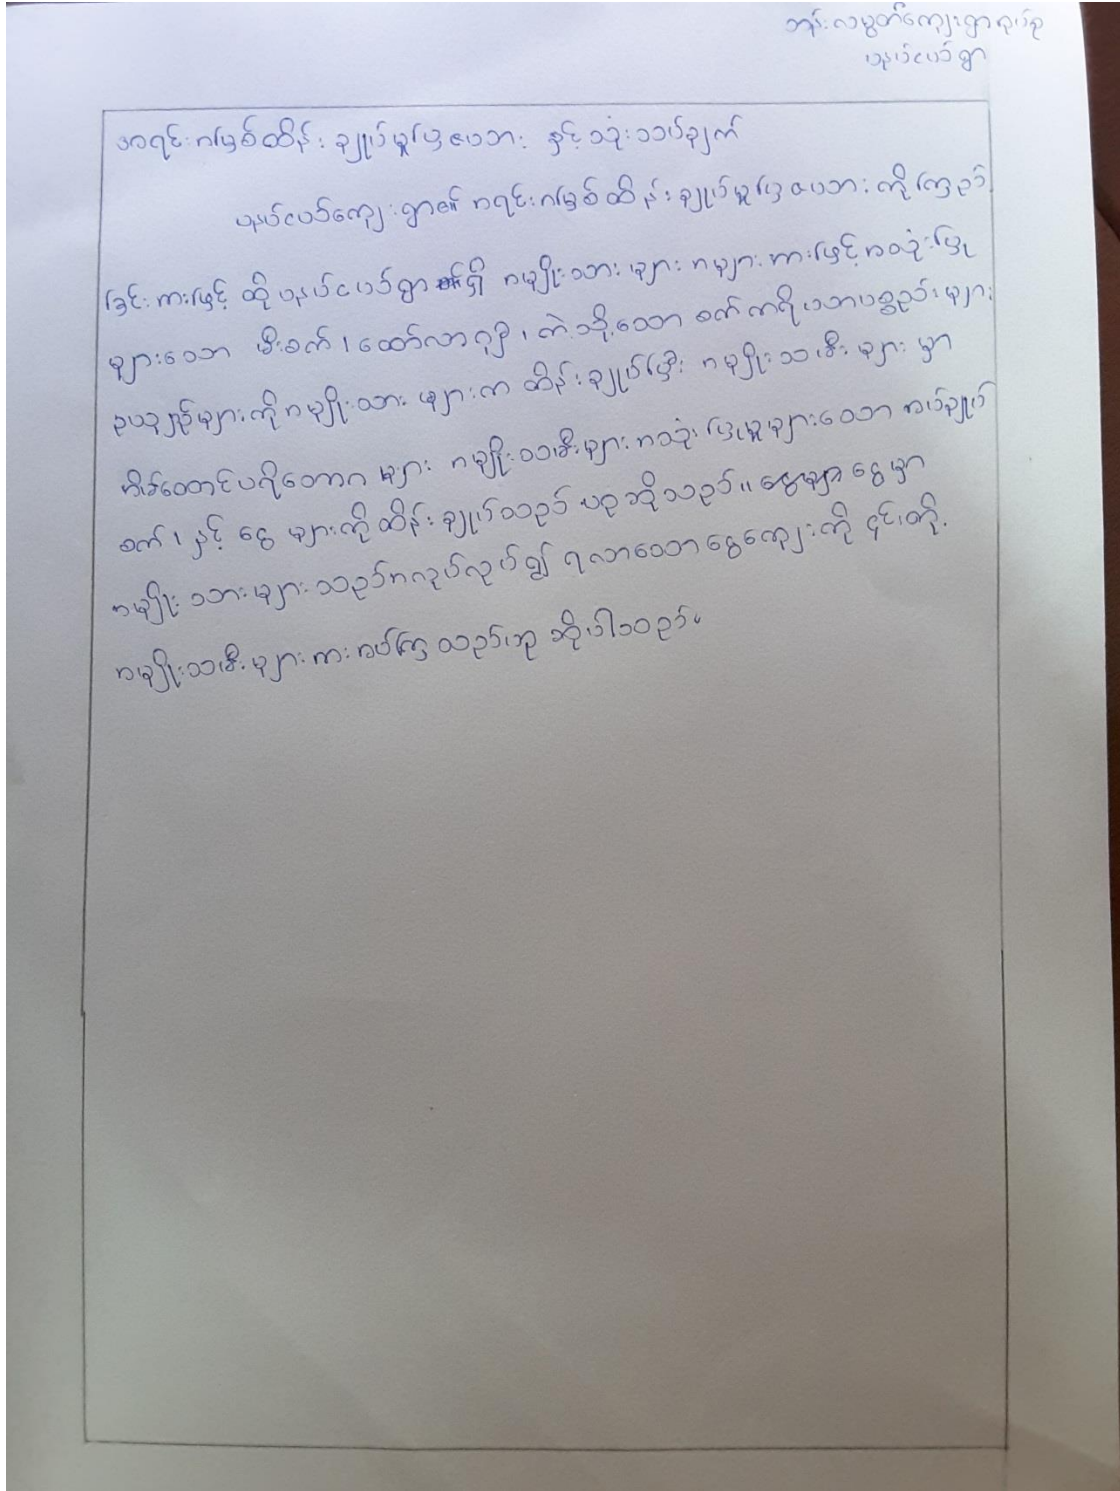 ဘန်းလမွတ်ကျေးရွာအုပ်စု
ပနပ်ငယ်ရွာ
အရင်းအမြစ်ထိန်းချုပ်မှုပြဇယား နှင့် သုံးသပ်ချက်
ပနပ်ငယ်ကျေးရွာ၏ အရင်းအမြစ်ထိန်းချုပ်မှုပြဇယား ကိုကြည့်
ခြင်းအားဖြင့် ထိုပနပ်ငယ်ရွာရှိ အမျိုးသားများ အများအားဖြင့်အသုံးပြု
များသော မီးစက်၊ ထော်လာဂျီ၊ ကဲ့သို့သော စက်ကရိယာပစ္စည်းများ
ဥပချည်များကိုအမျိုးသားများက ထိန်းချုပ်ပြီး အမျိုးသမီးများမှာ
အိမ်ထောင်ပရိဘောဂ များ အမျိုးသမီးများအသုံးပြုမှုများသော အပ်ချုပ်
စက်၊ နှင့် ငွေ များကို ထိန်းချုပ်သည် ဟုဆိုသည်။ ငွေမှာ
အမျိုးသားများသည်အလုပ်လုပ်၍ ရလာသောငွေကျေးကို ၎င်းတို့
အမျိုးသမီးများအားအပ်ကြသည်ဟု ဆိုပါသည်။